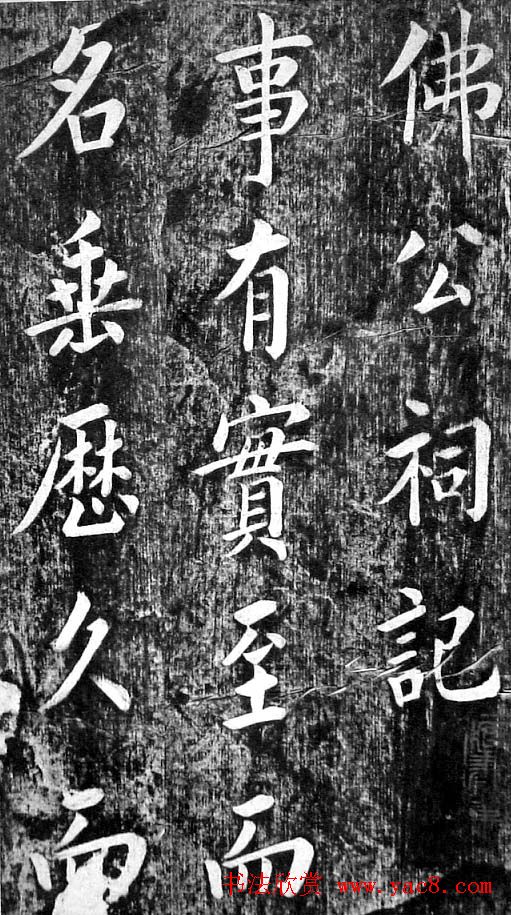 佛公祠記
事有實至而
名垂歷久而
书法欣赏 www.yac8.com